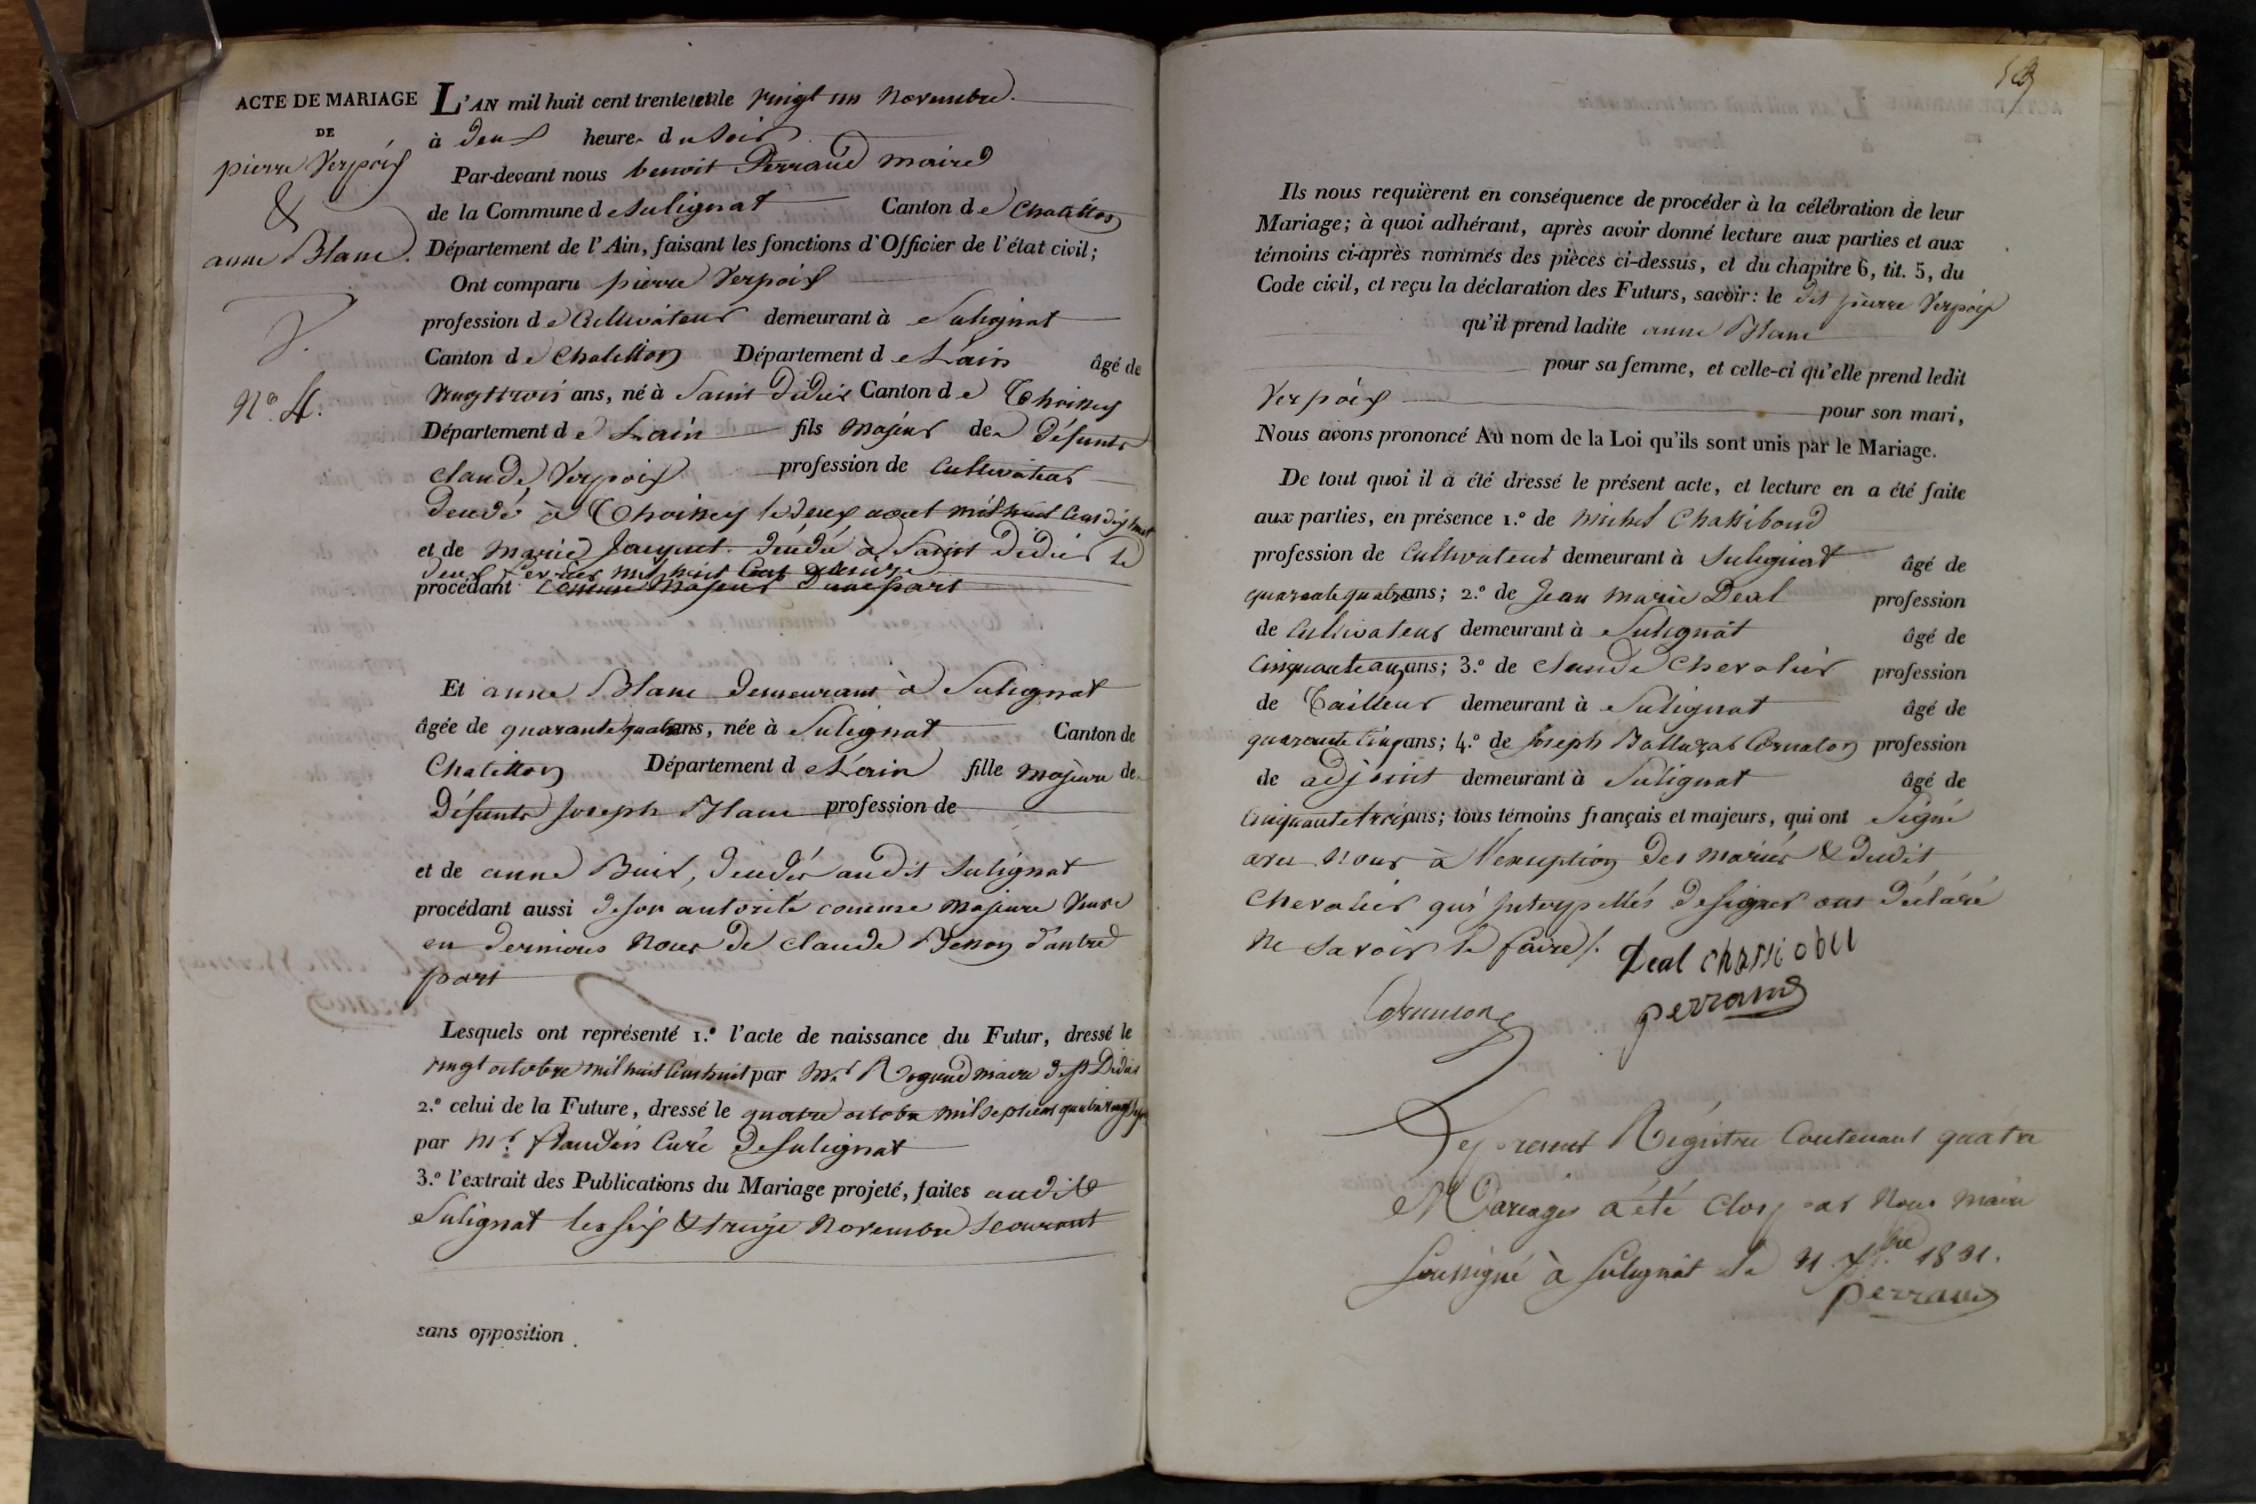 ACTE DE MARIAGE
DE
pierre Verpoix
&
anne Blanc
N.o 4.
L'AN mil huit cent trente et le vingt un Novembre
à deux heures du Soir
Par-devant nous benoit Perraud maire
de la Commune de Sulignat Canton de Chatillon
Département de l'Ain, faisant les fonctions d'Officier de l'état civil;
Ont comparu pierre Verpoix
profession de Cultivateur demeurant à Sulignat
Canton de Chatillon Département de L'ain âgé de
vingt trois ans, né à Saint Didier Canton de Thoissey
Département de L'ain fils Majeur de Défunts
claude Verpoix profession de Cultivateur
décédé à Thoissey le deux aout mil huit Cent dix huit
et de Marie Jacquet décédée à Saint Didier le
deux mil huit Cent
procédant Comme Majeur D'une part
Et anne Blanc demeurant à Sulignat
âgée de quarante quatre ans, née à Sulignat Canton de
Chatillon Département de L'ain fille majeure de
Défunts Joseph Blanc profession de
et de anne Buit, décédés audit Sulignat
procédant aussi de son autorité comme Majeure Veuve
en dernieres Noces de claude Benon d'autre
part
Lesquels ont représenté 1.º l'acte de naissance du Futur, dressé le
vingt octobre mil huit Cent huit par Mr. maire de St Didier
2.º celui de la Future, dressé le quatre octobre mil sept cent quatre vingt sept
par Mr. flaudin Curé de Sulignat
3.º l'extrait des Publications du Mariage projeté, faites audit
Sulignat les six & treize Novembre Courant
sans opposition.
Ils nous requièrent en conséquence de procéder à la célébration de leur
Mariage; à quoi adhérant, après avoir donné lecture aux parties et aux
témoins ci-après nommés des pièces ci-dessus, et du chapitre 6, tit. 5, du
Code civil, et reçu la déclaration des Futurs, savoir: le dit pierre Verpoix
qu'il prend ladite anne Blanc
pour sa femme, et celle-ci qu'elle prend ledit
Verpoix pour son mari,
Nous avons prononcé Au nom de la Loi qu'ils sont unis par le Mariage.
De tout quoi il a été dressé le présent acte, et lecture en a été faite
aux parties, en présence 1.º de Michel Chassiboud
profession de Cultivateur demeurant à Sulignat âgé de
quarante quatre ans; 2.º de Jean Marie Deal profession
de Cultivateur demeurant à Sulignat âgé de
Cinquante ans; 3.º de claude Chevalier profession
de Tailleur demeurant à Sulignat âgé de
quarante Cinq ans; 4.º de Joseph Baltazar Cornaton profession
de adjoint demeurant à Sulignat âgé de
Cinquante trois ans; tous témoins français et majeurs, qui ont Signé
avec Nous à l'exception des mariés & dudit
Chevalier qui interpellés de signer ont déclaré
ne savoir le faire /. Deal chassi obu
Cornaton perraud
Le present Régistre Contenant quatre
Mariages a été Clos par Nous maire
soussigné à Sulignat le 31 Xbre 1831.
perraud